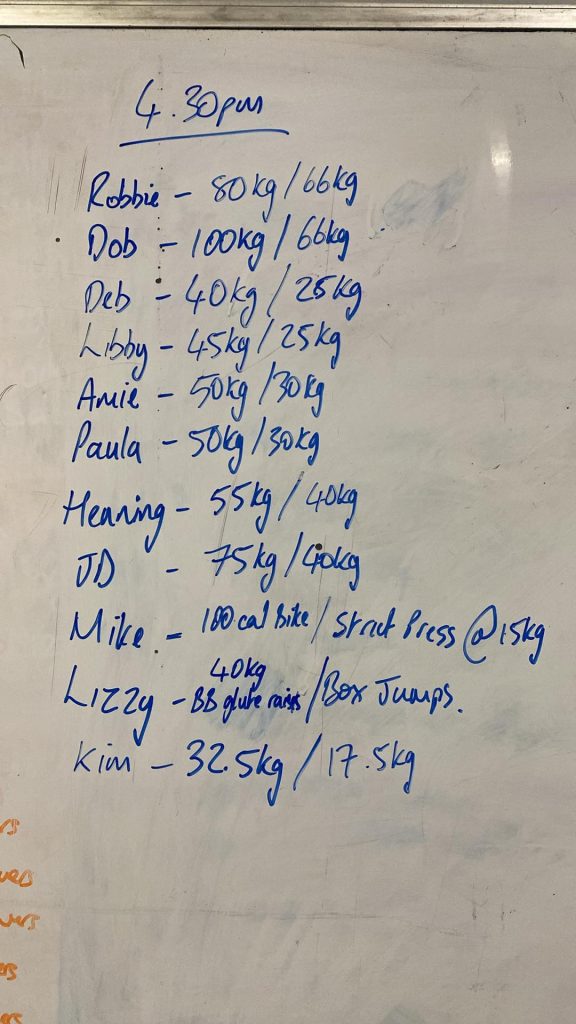 4.30pm
Robbie - 80kg/66kg
Dob - 100kg/66kg
Deb - 40kg/25kg
Libby - 45kg/25kg
Amie - 50kg/30kg
Paula - 50kg/30kg
Henning - 55kg/40kg
JD - 75kg/40kg
Mike - 100 cal Bike/Strict Press @15kg
40kg
Lizzy - BB glute raises/Box Jumps.
Kim - 32.5kg/17.5kg